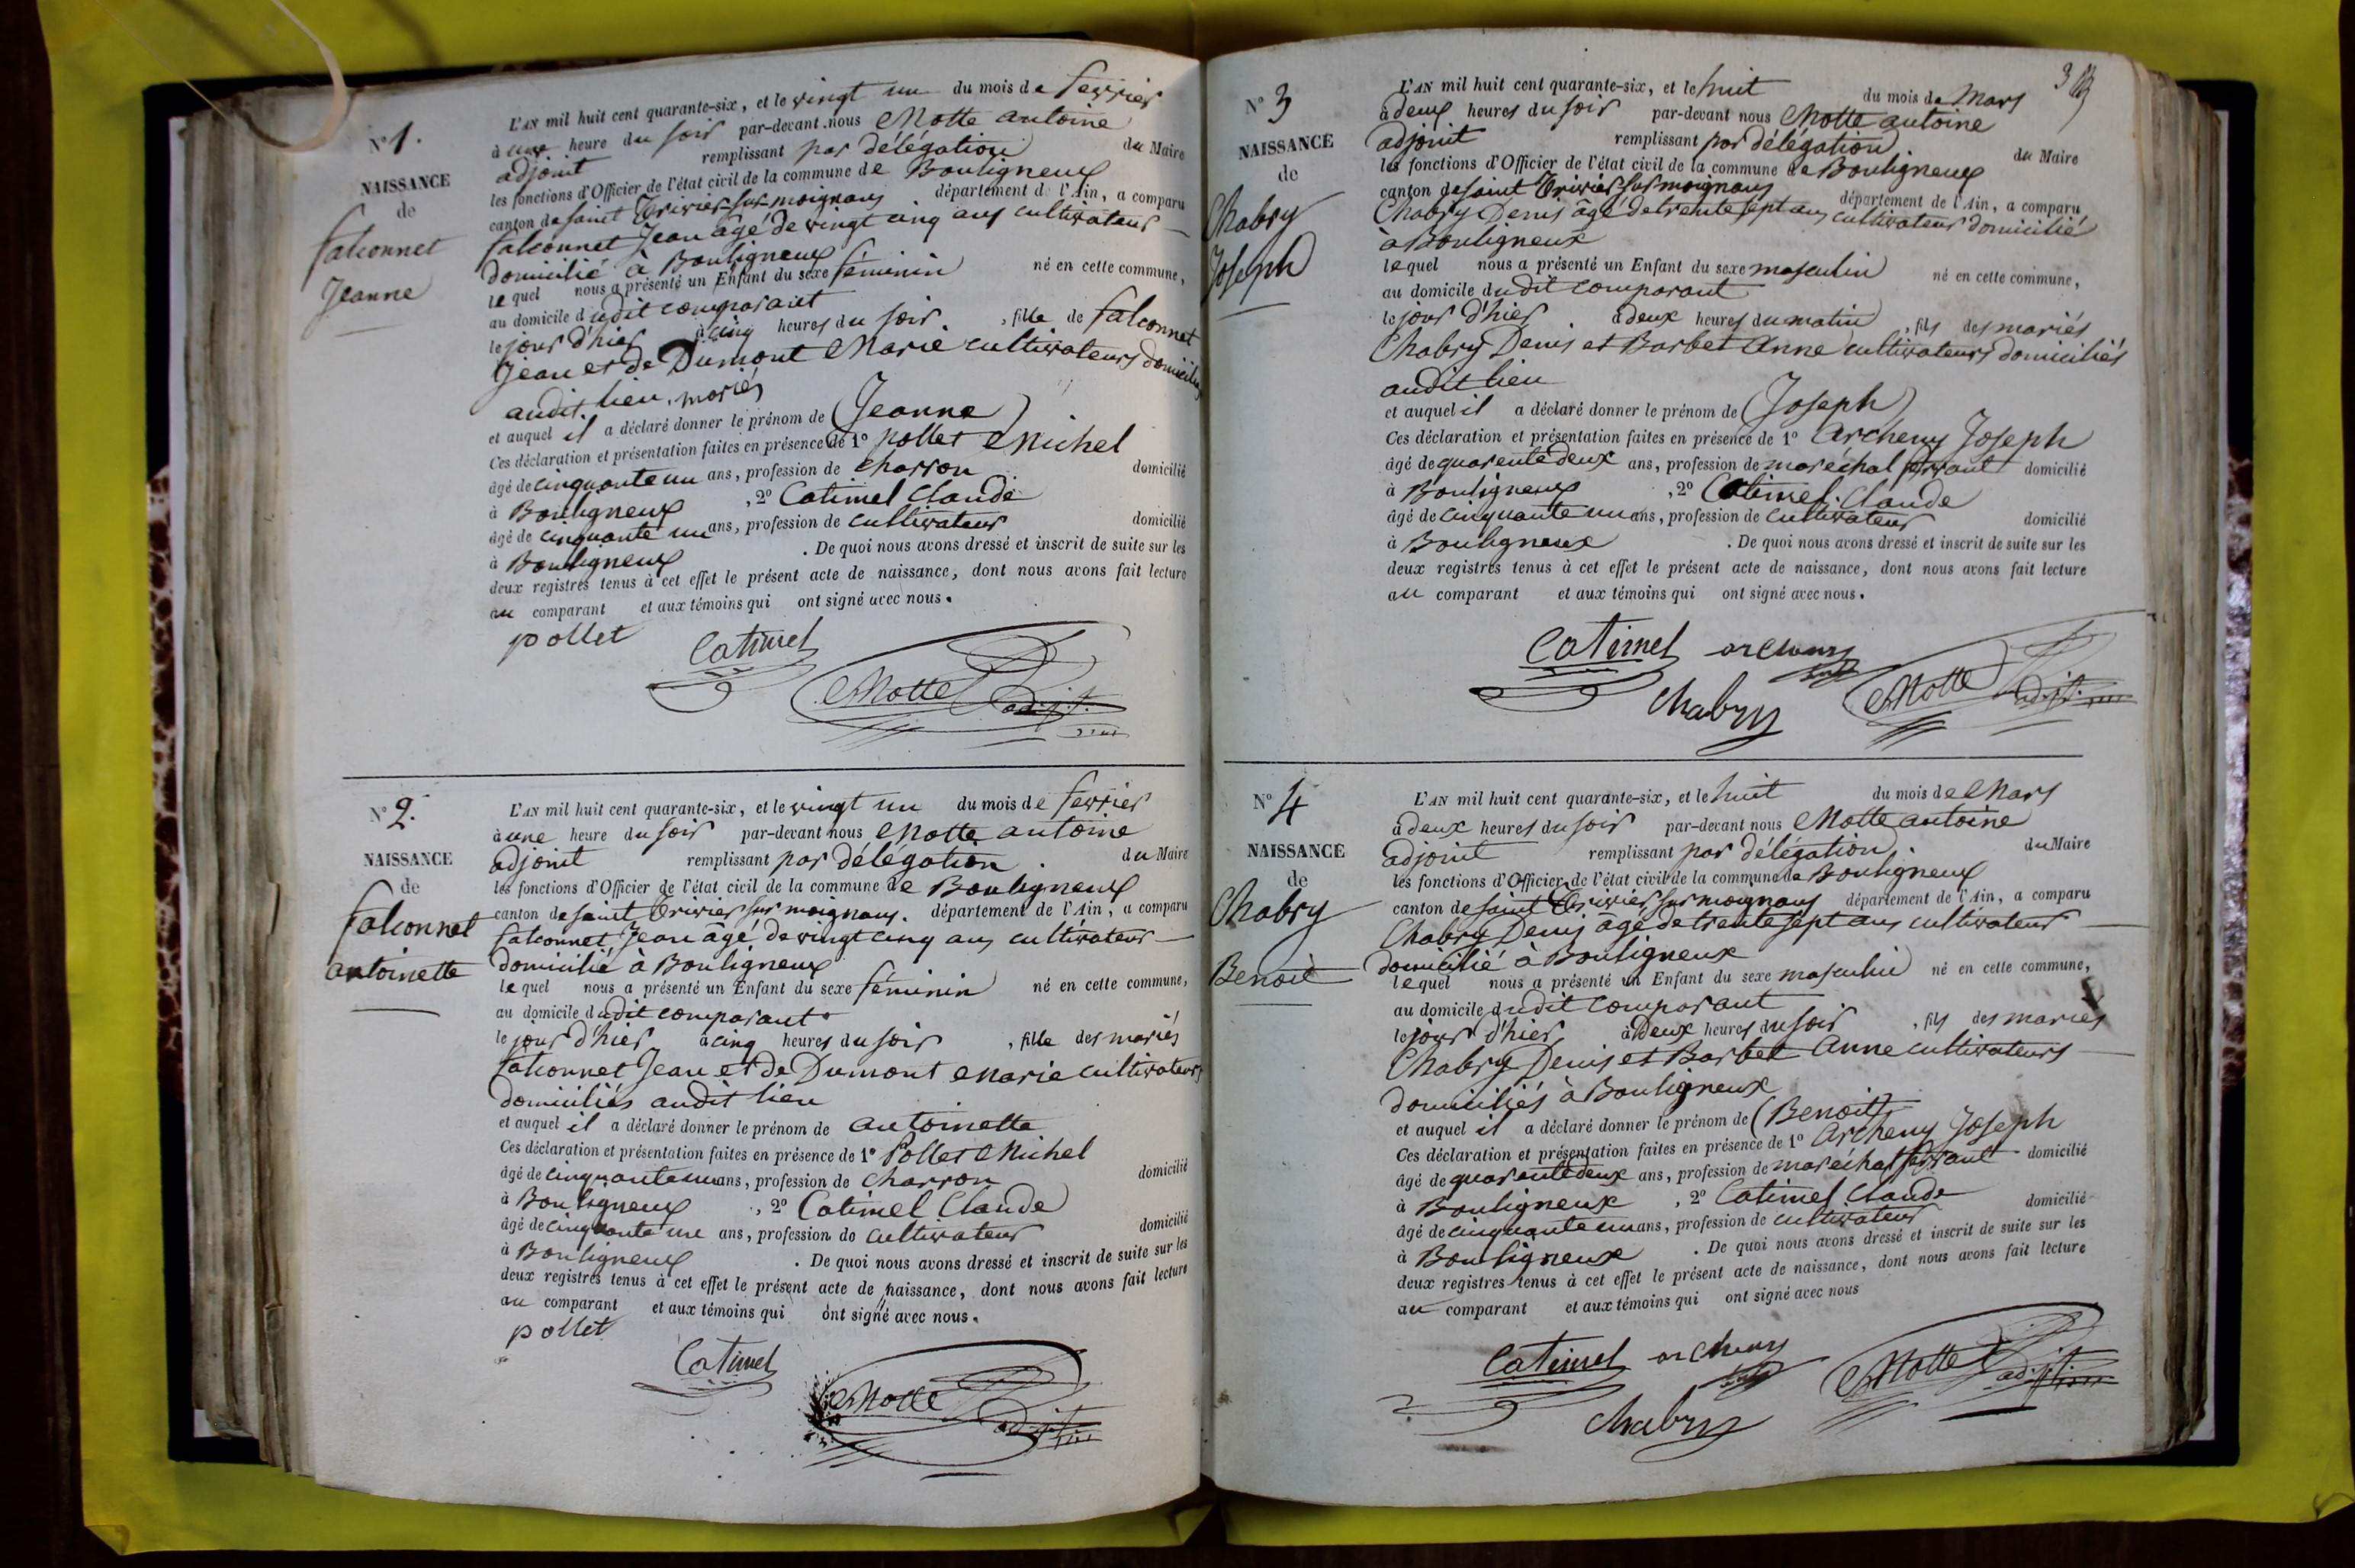 N° 1.
NAISSANCE
de
falconnet
Jeanne
L'AN mil huit cent quarante-six, et le vingt un du mois de fevrier
à une heure du soir par-devant nous Motte antoine
adjoint remplissant par délégation du Maire
les fonctions d'Officier de l'état civil de la commune de Bouligneux
canton de saint Trivier sur moignans département de l'Ain, a comparu
falconnet Jean âgé de vingt cinq ans cultivateur
domicilié à Bouligneux
lequel nous a présenté un Enfant du sexe féminin né en cette commune,
au domicile dudit comparant
le jour d'hier à cinq heures du soir, fille de falconnet
Jean et de Dumont Marie cultivateurs domiciliés
audit lieu, mariés
et auquel il a déclaré donner le prénom de (Jeanne)
Ces déclaration et présentation faites en présence de 1° pollet Michel
âgé de cinquante un ans, profession de charron domicilié
à Bouligneux, 2° Catimel Claude
âgé de cinquante un ans, profession de cultivateur domicilié
à Bouligneux. De quoi nous avons dressé et inscrit de suite sur les
deux registres tenus à cet effet le présent acte de naissance, dont nous avons fait lecture
au comparant et aux témoins qui ont signé avec nous.
pollet Catimel
Motte adjt.
N° 2.
NAISSANCE
de
falconnet
antoinette
L'AN mil huit cent quarante-six, et le vingt un du mois de fevrier
à une heure du soir par-devant nous Motte antoine
adjoint remplissant par délégation. du Maire
les fonctions d'Officier de l'état civil de la commune de Bouligneux
canton de saint Trivier sur moignans. département de l'Ain, a comparu
falconnet Jean âgé de vingt cinq ans cultivateur
domicilié à Bouligneux
lequel nous a présenté un Enfant du sexe féminin né en cette commune,
au domicile dudit comparant
le jour d'hier à cinq heures du soir, fille des mariés
falconnet Jean et de Dumont Marie cultivateurs
domiciliés audit lieu
et auquel il a déclaré donner le prénom de antoinette
Ces déclaration et présentation faites en présence de 1° Pollet Michel
âgé de cinquante un ans, profession de charron domicilié
à Bouligneux, 2° Catimel Claude
âgé de cinquante un ans, profession de cultivateur domicilié
à Bouligneux. De quoi nous avons dressé et inscrit de suite sur les
deux registres tenus à cet effet le présent acte de naissance, dont nous avons fait lecture
au comparant et aux témoins qui ont signé avec nous.
pollet
Catimel
Motte adjt.
3
N° 3
NAISSANCE
de
Chabry
Joseph
L'AN mil huit cent quarante-six, et le huit du mois de Mars
à deux heures du soir par-devant nous Motte antoine
adjoint remplissant par délégation du Maire
les fonctions d'Officier de l'état civil de la commune de Bouligneux
canton de saint Trivier sur moignans département de l'Ain, a comparu
Chabry Denis âgé de trente sept ans cultivateur domicilié
à Bouligneux
lequel nous a présenté un Enfant du sexe masculin né en cette commune,
au domicile dudit comparant
le jour d'hier à deux heures du matin, fils des mariés
Chabry Denis et Barbet Anne cultivateurs domiciliés
audit lieu
et auquel il a déclaré donner le prénom de (Joseph)
Ces déclaration et présentation faites en présence de 1° Archeny Joseph
âgé de quarante deux ans, profession de maréchal ferrant domicilié
à Bouligneux, 2° Catimel Claude
âgé de cinquante un ans, profession de cultivateur domicilié
à Bouligneux. De quoi nous avons dressé et inscrit de suite sur les
deux registres tenus à cet effet le présent acte de naissance, dont nous avons fait lecture
au comparant et aux témoins qui ont signé avec nous.
Catimel archeny
Chabry Motte adjt.
N° 4
NAISSANCE
de
Chabry
Benoit
L'AN mil huit cent quarante-six, et le huit du mois de Mars
à deux heures du soir par-devant nous Motte antoine
adjoint remplissant par délégation. du Maire
les fonctions d'Officier de l'état civil de la commune de Bouligneux
canton de saint Trivier sur moignans département de l'Ain, a comparu
Chabry Denis âgé de trente sept ans cultivateur
domicilié à Bouligneux
lequel nous a présenté un Enfant du sexe masculin né en cette commune,
au domicile dudit comparant
le jour d'hier à deux heures du soir, fils des mariés
Chabry Denis et Barbet Anne cultivateurs
domiciliés à Bouligneux
et auquel il a déclaré donner le prénom de (Benoit)
Ces déclaration et présentation faites en présence de 1° Archeny Joseph
âgé de quarante deux ans, profession de maréchal ferrant domicilié
à Bouligneux, 2° Catimel Claude
âgé de cinquante un ans, profession de cultivateur domicilié
à Bouligneux. De quoi nous avons dressé et inscrit de suite sur les
deux registres tenus à cet effet le présent acte de naissance, dont nous avons fait lecture
au comparant et aux témoins qui ont signé avec nous
Catimel archeny Motte adjt.
Chabry